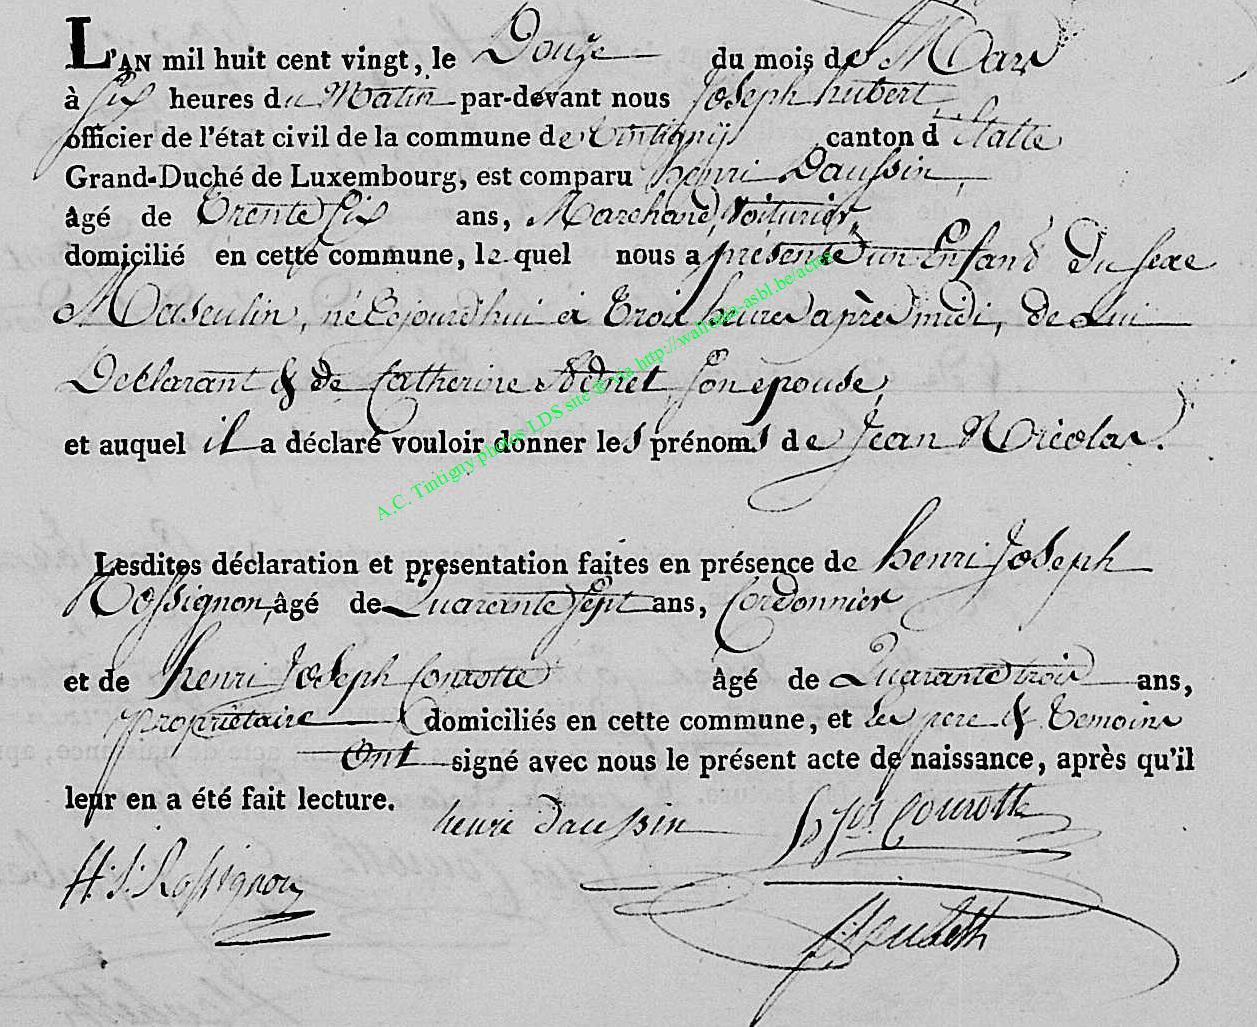 L'AN mil huit cent vingt, le Douze du mois de Mars
à six heures du Matin par-devant nous Joseph hubert,
officier de l'état civil de la commune de Tintigny canton d'Etalle
Grand-Duché de Luxembourg, est comparu henri Daussin,
âgé de Trente six ans, Marchand, Voiturier,
domicilié en cette commune, le quel nous a présenté un Enfant du sexe
Masculin, né Cejourd'hui à trois heures après midi, de Lui
Déclarant & de Catherine son epouse,
et auquel il a déclaré vouloir donner les prénoms de Jean Nicolas.
Lesdites déclaration et presentation faites en présence de henri Joseph
Rossignon, âgé de Quarante sept ans, Cordonnier
et de henri Joseph Conrotte âgé de Quarante trois ans,
propriétaire domiciliés en cette commune, et les pere & temoins
Ont signé avec nous le présent acte de naissance, après qu'il
leur en a été fait lecture.
henri daussin
h Jph Conrotte
H. J. Rossignon
A.C. Tintigny photos LDS site & via http://wallonia-asbl.be/actes